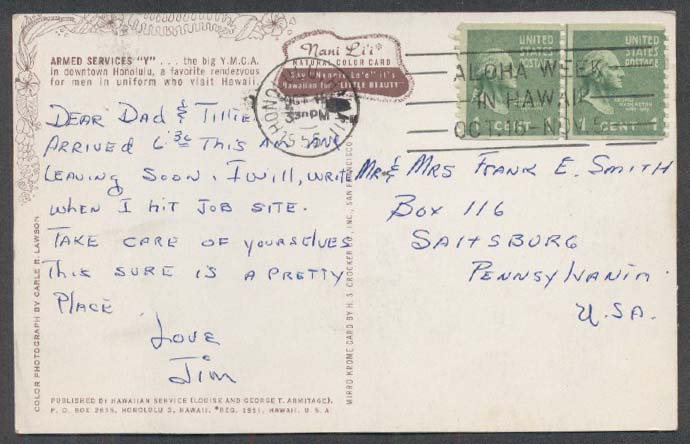 ARMED SERVICES "Y" . . . the big Y.M.C.A.
in downtown Honolulu, a favorite rendezvous
for men in uniform who visit Hawaii.
Nani Li'i*
NATURAL COLOR CARD
Say "Nannie Lee's" it's
Hawaiian for LITTLE BEAUTY
DEAR DAD & TILLIE
ARRIVED 6:30 THIS AM AND
LEAVING SOON. I WILL, WRITE
WHEN I HIT JOB SITE.
TAKE CARE OF YOURSELVES
THIS SURE IS A PRETTY
PLACE
LOVE
JIM
PUBLISHED BY HAWAIIAN SERVICE (LOUISE AND GEORGE T. ARMITAGE),
P. O. BOX 2835, HONOLULU 3, HAWAII. *REG. 1951, HAWAII, U. S. A.
COLOR PHOTOGRAPH BY CARLE R. LAWSON
MIRRO KROME CARD BY H. S. CROCKER CO., INC., SAN FRANCISCO
HONOLULU
OCT
330PM
1955
UNITED
STATES
POSTAGE
1 CENT
UNITED
STATES
POSTAGE
GEORGE
WASHINGTON
1 CENT 1
ALOHA WEEK
IN HAWAII
OCT.16-NOV.5
MR & MRS FRANK E. SMITH
BOX 116
SALTSBURG
PENNSYLVANIA
U.S.A.